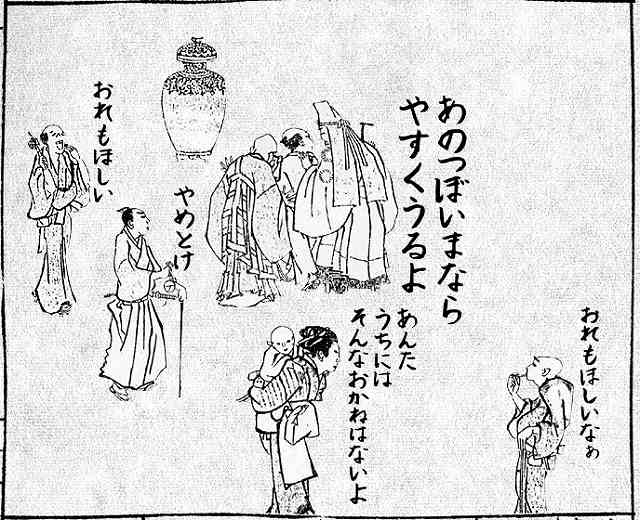 あのつぼいまなら
やすくうるよ
おれもほしいなぁ
あんた
うちには
そんなおかねはないよ
やめとけ
おれもほしい